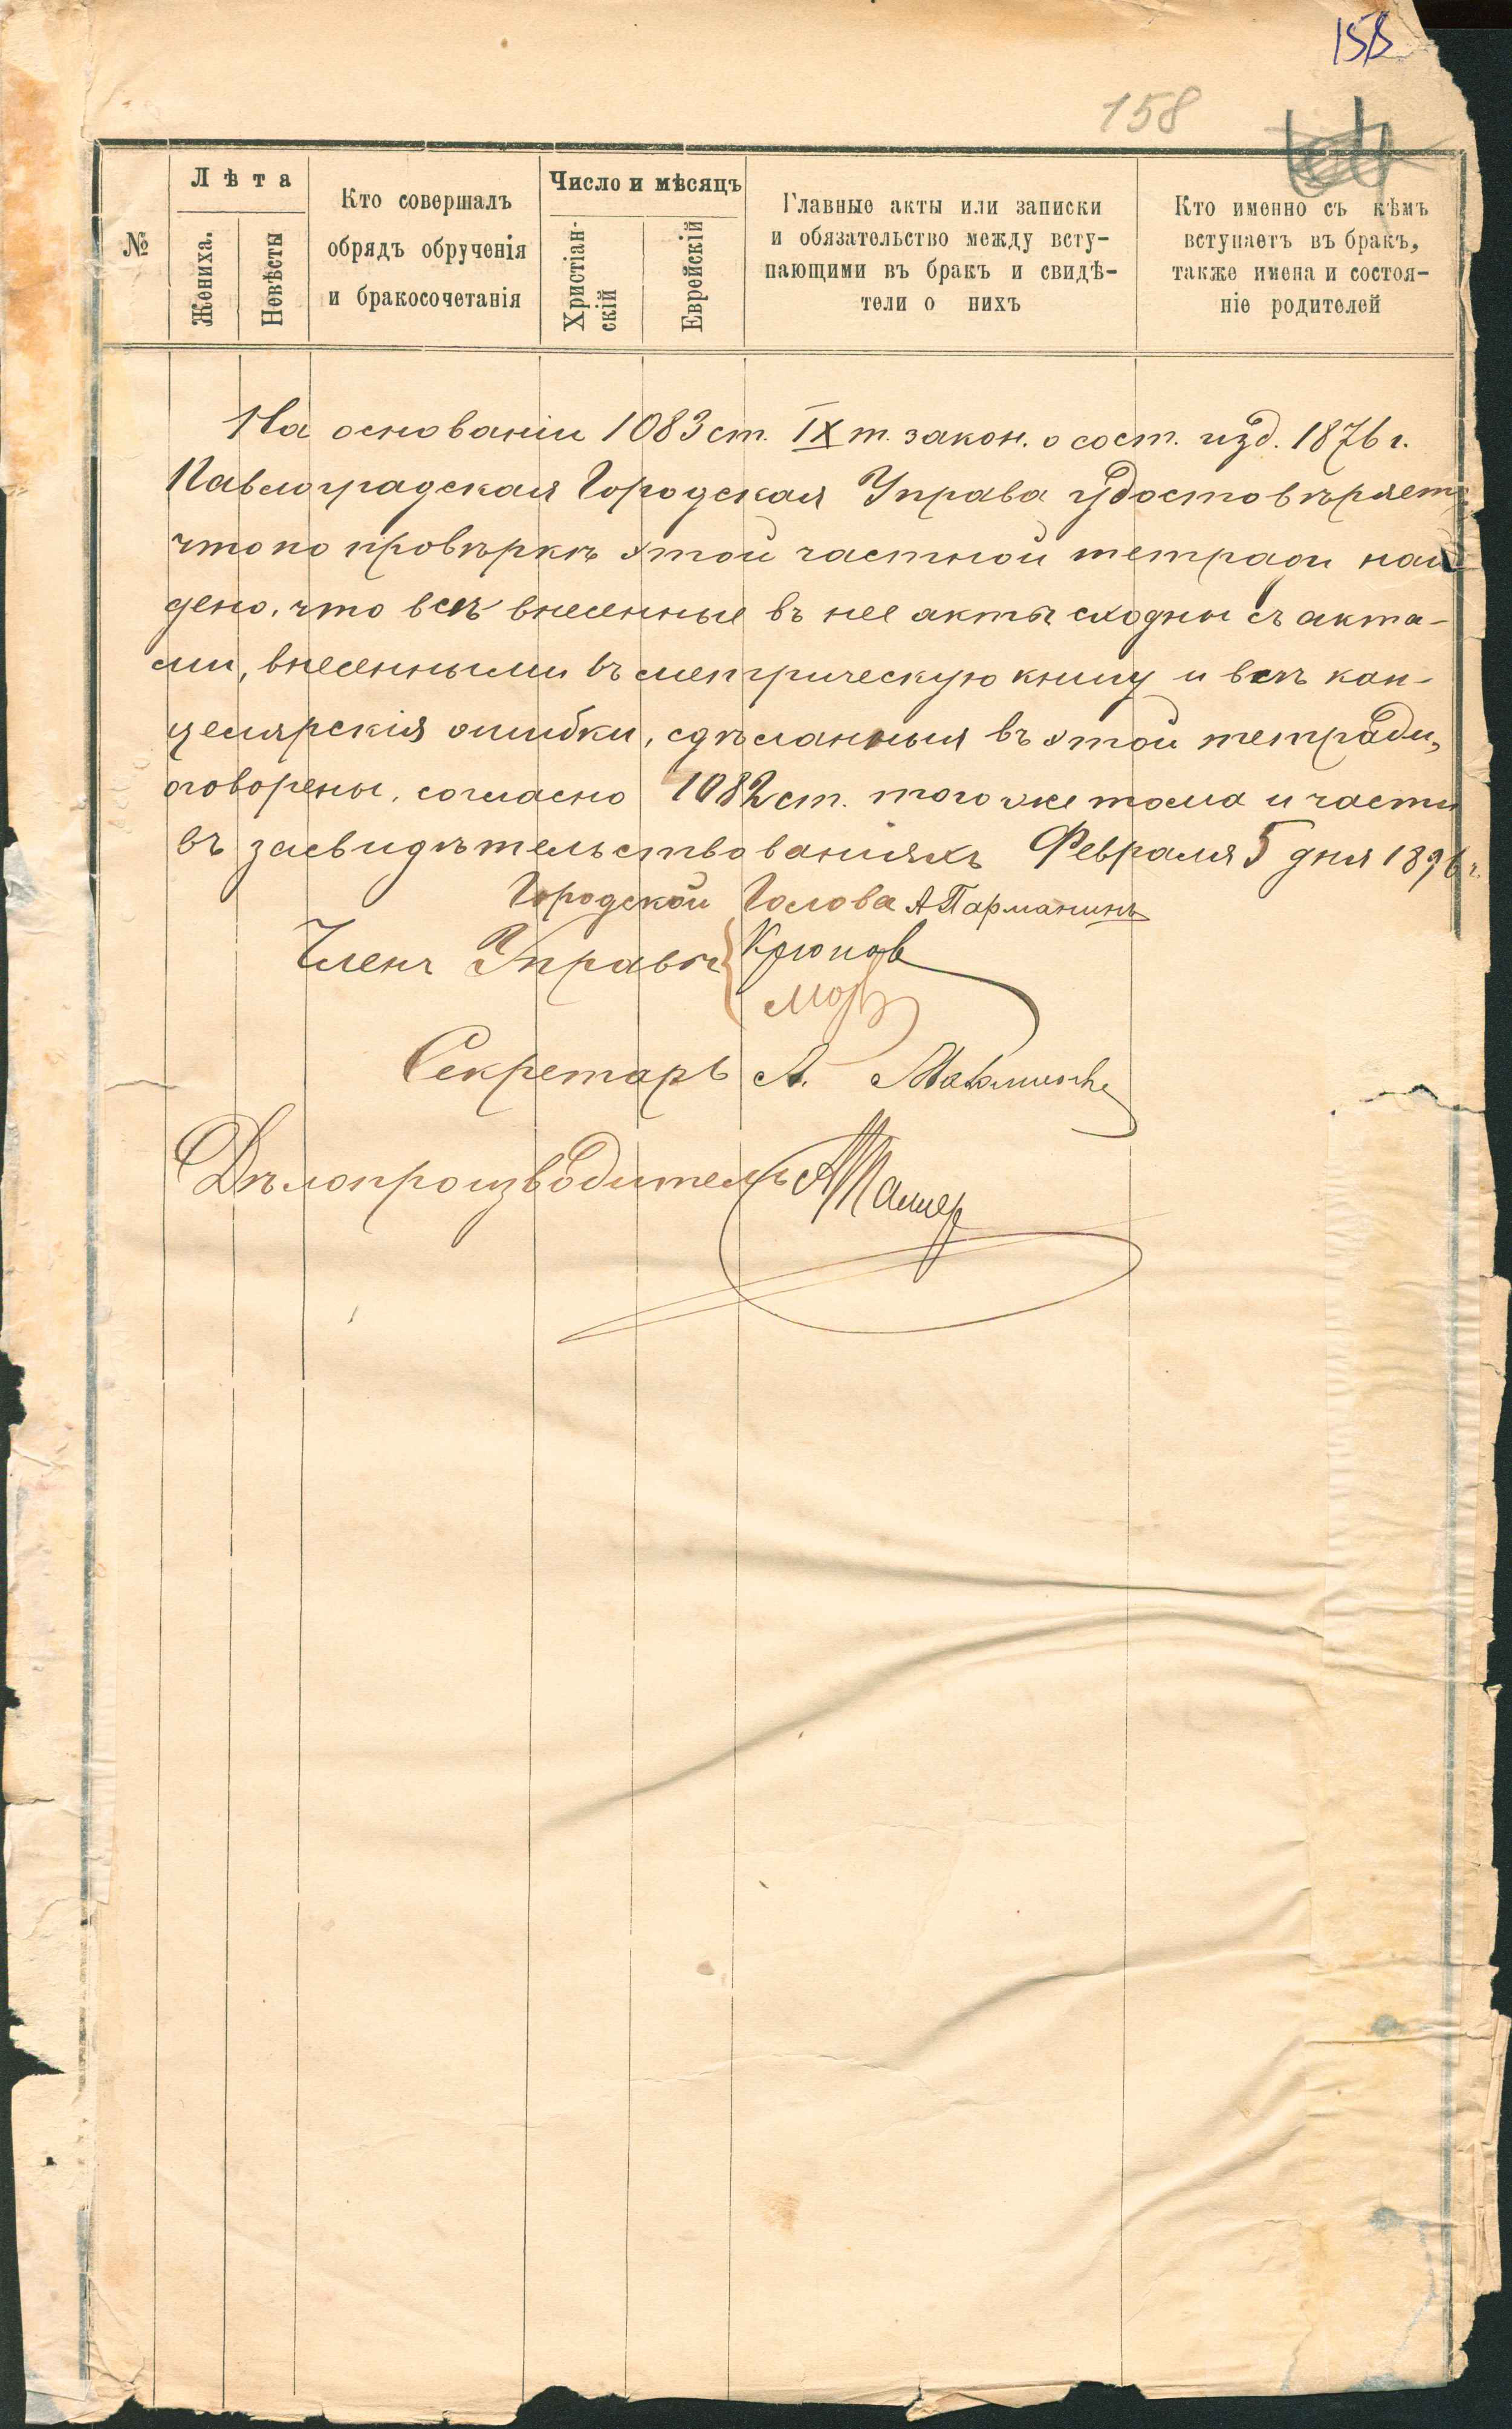 158
158
№
Лѣта
Жениха.
Невѣсты
Кто совершалъ
обрядъ обрученія
и бракосочетанія
Число и мѣсяцъ
Христіан-
скій
Еврейскій
Главные акты или записки
и обязательство между всту-
пающими въ бракъ и свидѣ-
тели о нихъ
Кто именно съ кѣмъ
вступаетъ въ бракъ,
также имена и состоя-
ніе родителей
На основаніи 1083 ст. IX т. закон. о сост. изд. 1876 г.
Павлоградская Городская Управа удостовѣряетъ
что по провѣркѣ этой частной тетради най
дено, что всѣ внесенные въ нее акты сходны съ акта-
ми, внесенными въ метрическую книгу и всѣ кан-
целярскія ошибки, сдѣланныя въ этой тетради,
оговорены, согласно 1082 ст. того же тома и части
въ засвидѣтельствованіяхъ Февраля 5 дня 1896 г.
Городской Голова
Члены Управы Крюков
Секретарь А.
Дѣлопроизводитель